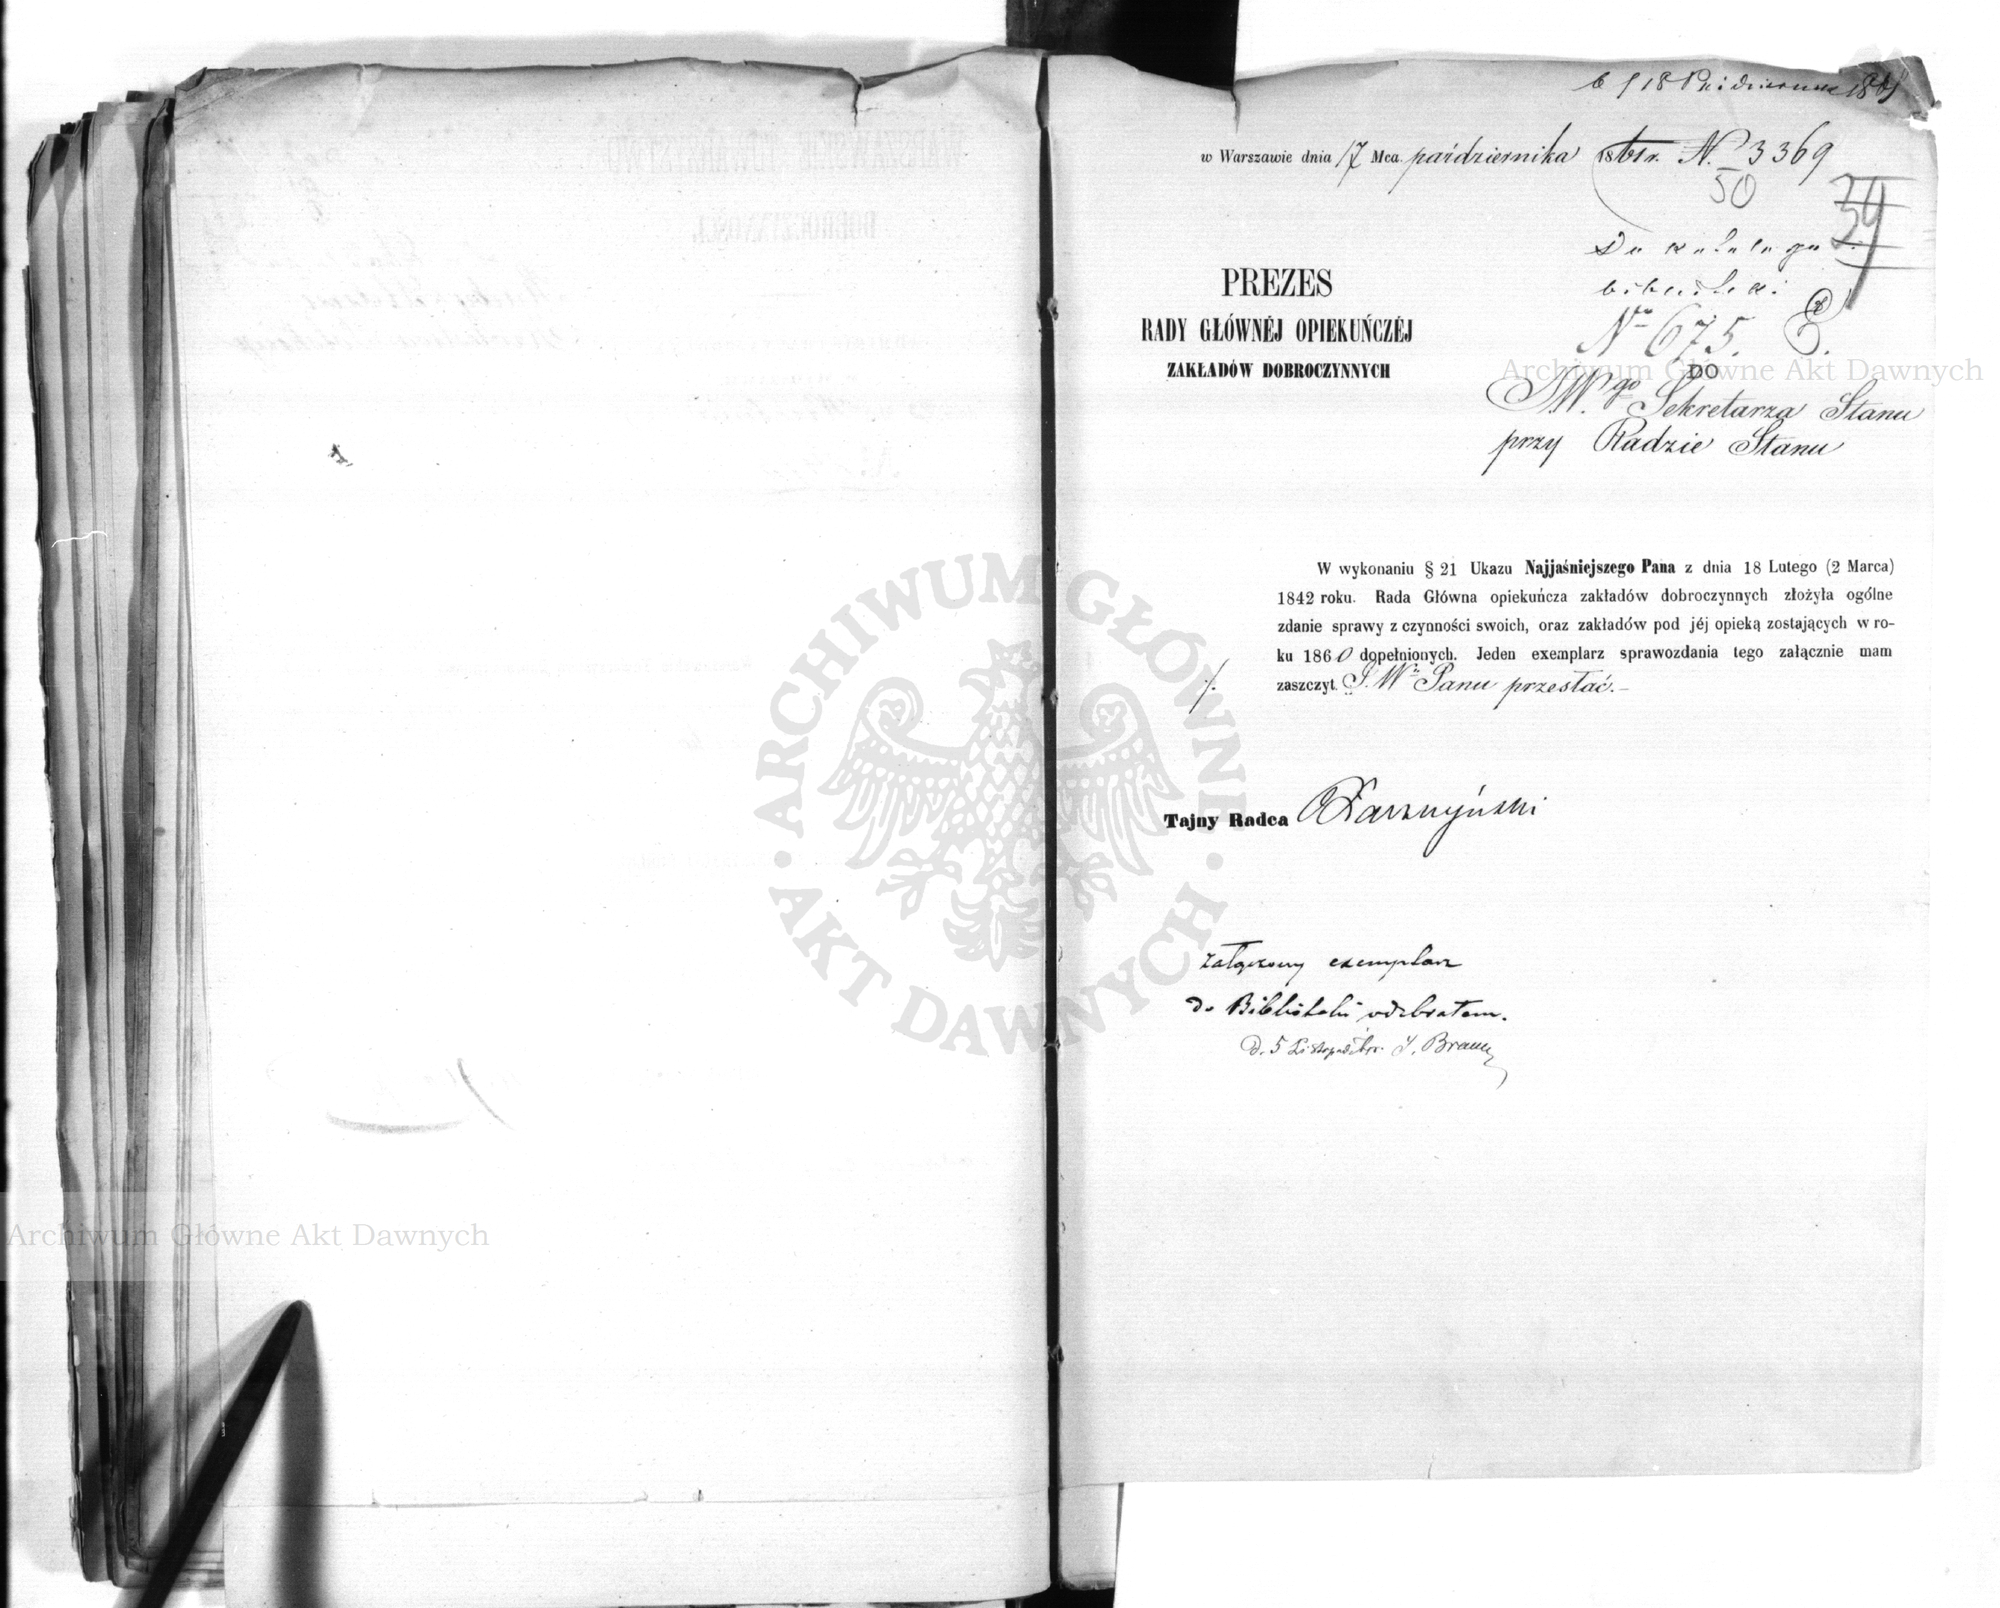 18 Października 1861
w Warszawie dnia 17 Mca. października 1861 r. N. 3369
50
39
Do katalogu
biblioteki
No 675.
PREZES
RADY GŁÓWNÉJ OPIEKUŃCZÉJ
ZAKŁADÓW DOBROCZYNNYCH
DO
J.W.go Sekretarza Stanu
przy Radzie Stanu
W wykonaniu § 21 Ukazu Najjaśniejszego Pana z dnia 18 Lutego (2 Marca)
1842 roku. Rada Główna opiekuńcza zakładów dobroczynnych złożyła ogólne
zdanie sprawy z czynności swoich, oraz zakładów pod jéj opieką zostających w ro-
ku 1860 dopełnionych. Jeden exemplarz sprawozdania tego załącznie mam
zaszczyt J. W. Panu przesłać.
Tajny Radca
załączony exemplarz
do Biblioteki odebrałem.
d. 5 Listopada J. Braun
ARCHIWUM GŁÓWNE
AKT DAWNYCH
Archiwum Główne Akt Dawnych
Archiwum Główne Akt Dawnych